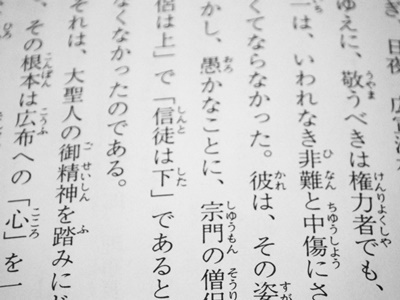 、日夜、広宣
ゆえに、敬うべきは権力者でも、
一は、いわれなき非難と中傷にさ
くてならなかった。彼は、その姿
かし、愚かなことに、宗門の僧侶
侶は上」で「信徒は下」であると
なくなかったのである。
それは、大聖人の御精神を踏みに
、その根本は広布への「心」を一